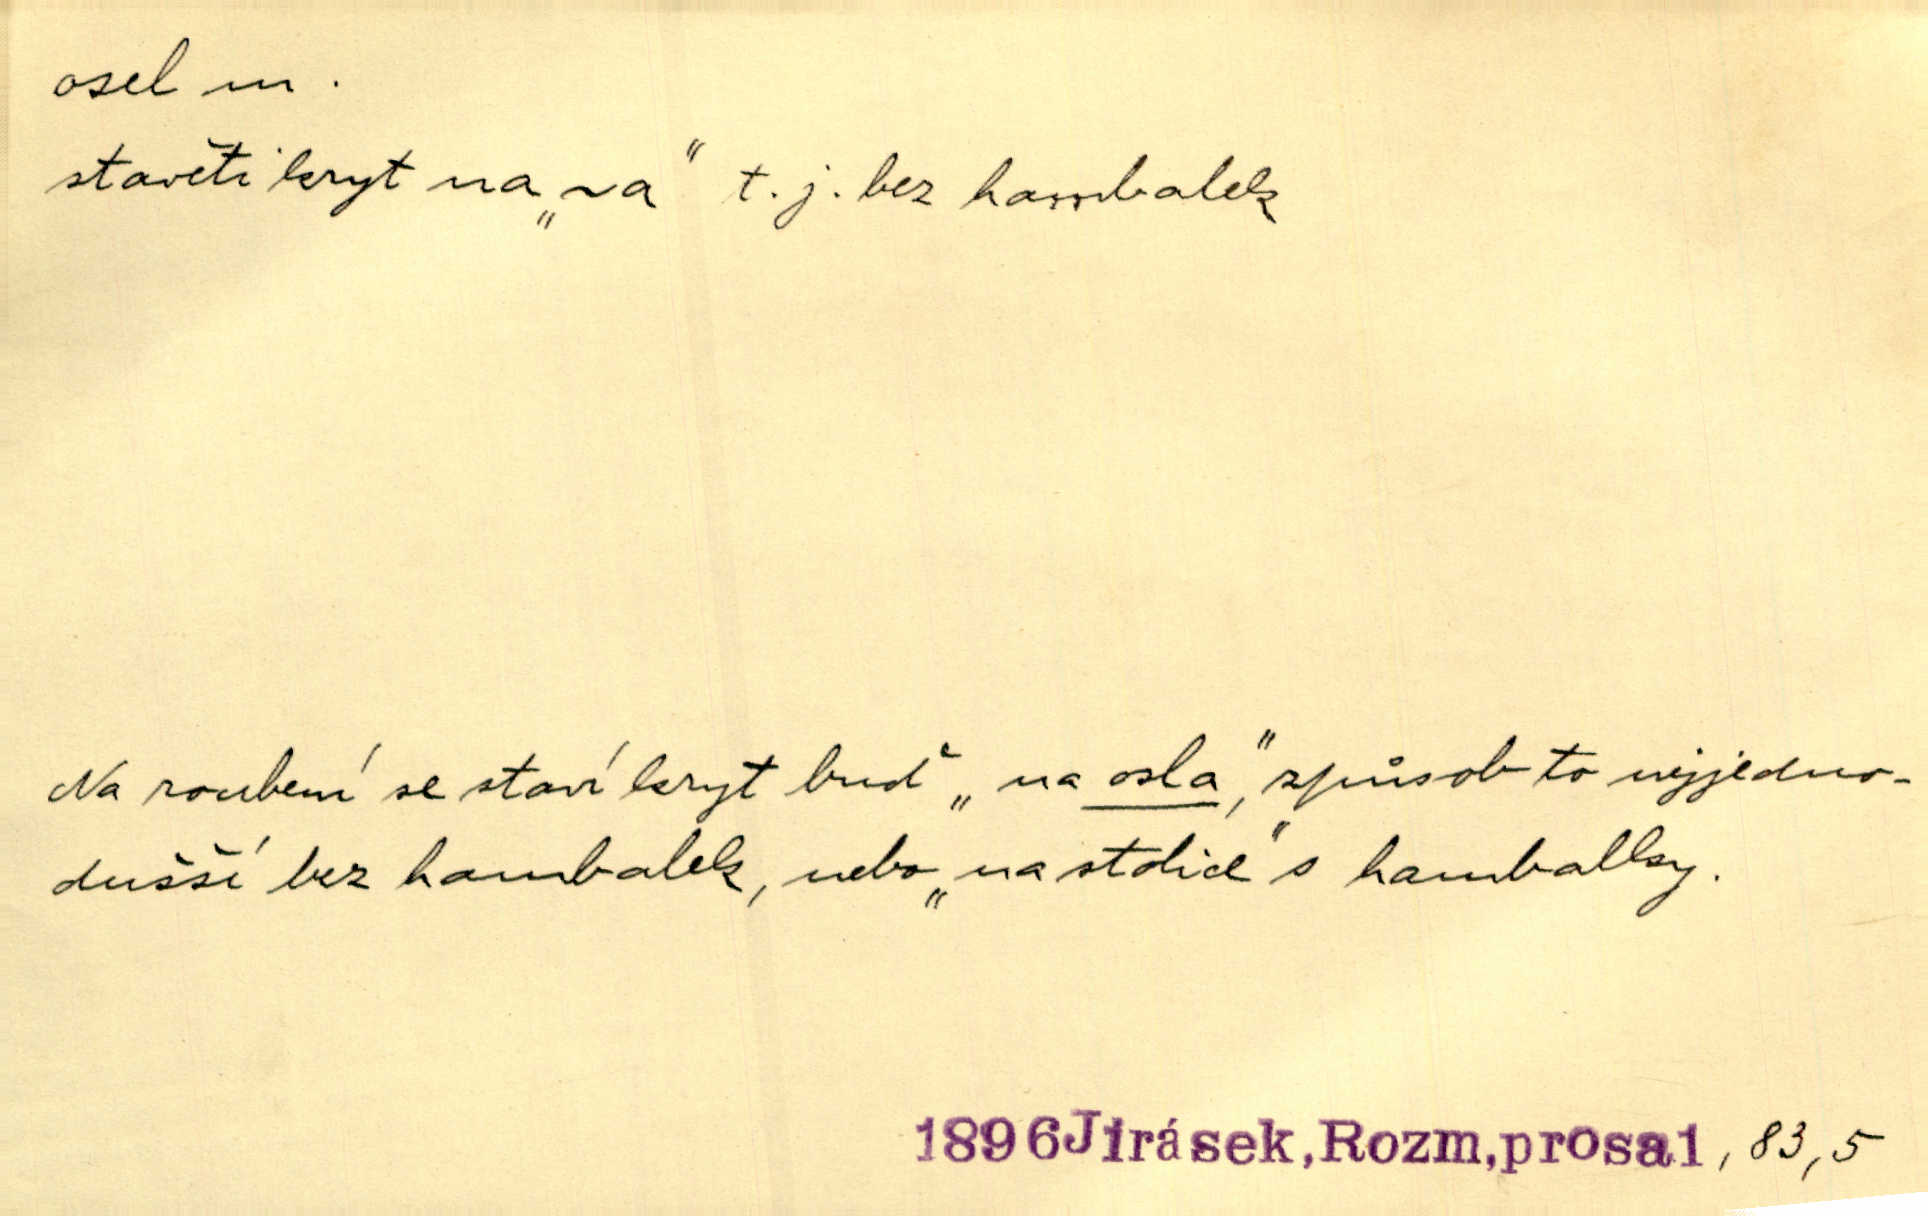 osel m.
stavěti kryt na „~a“ t. j. bez hambalek
Na roubení se staví kryt buď „na osla,“ způsob to nejjedno-
dušší bez hambalek, nebo „na stolice“ s hambalky.
1896 Jirásek, Rozm, prosa1, 83, 5